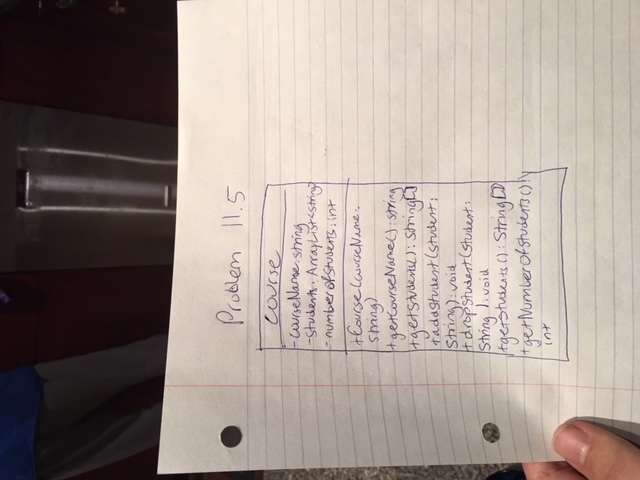 Problem 11.5
Course
-courseName:string
-students:ArrayList<string>
-numberofstudents:int
+Course(courseName:
string)
+getCourseName():string
+getStudents():String[]
+addStudent(student:
String):void
+dropStudent(student:
String):void
+getStudents():String[]
+getNumberOfStudents():
int